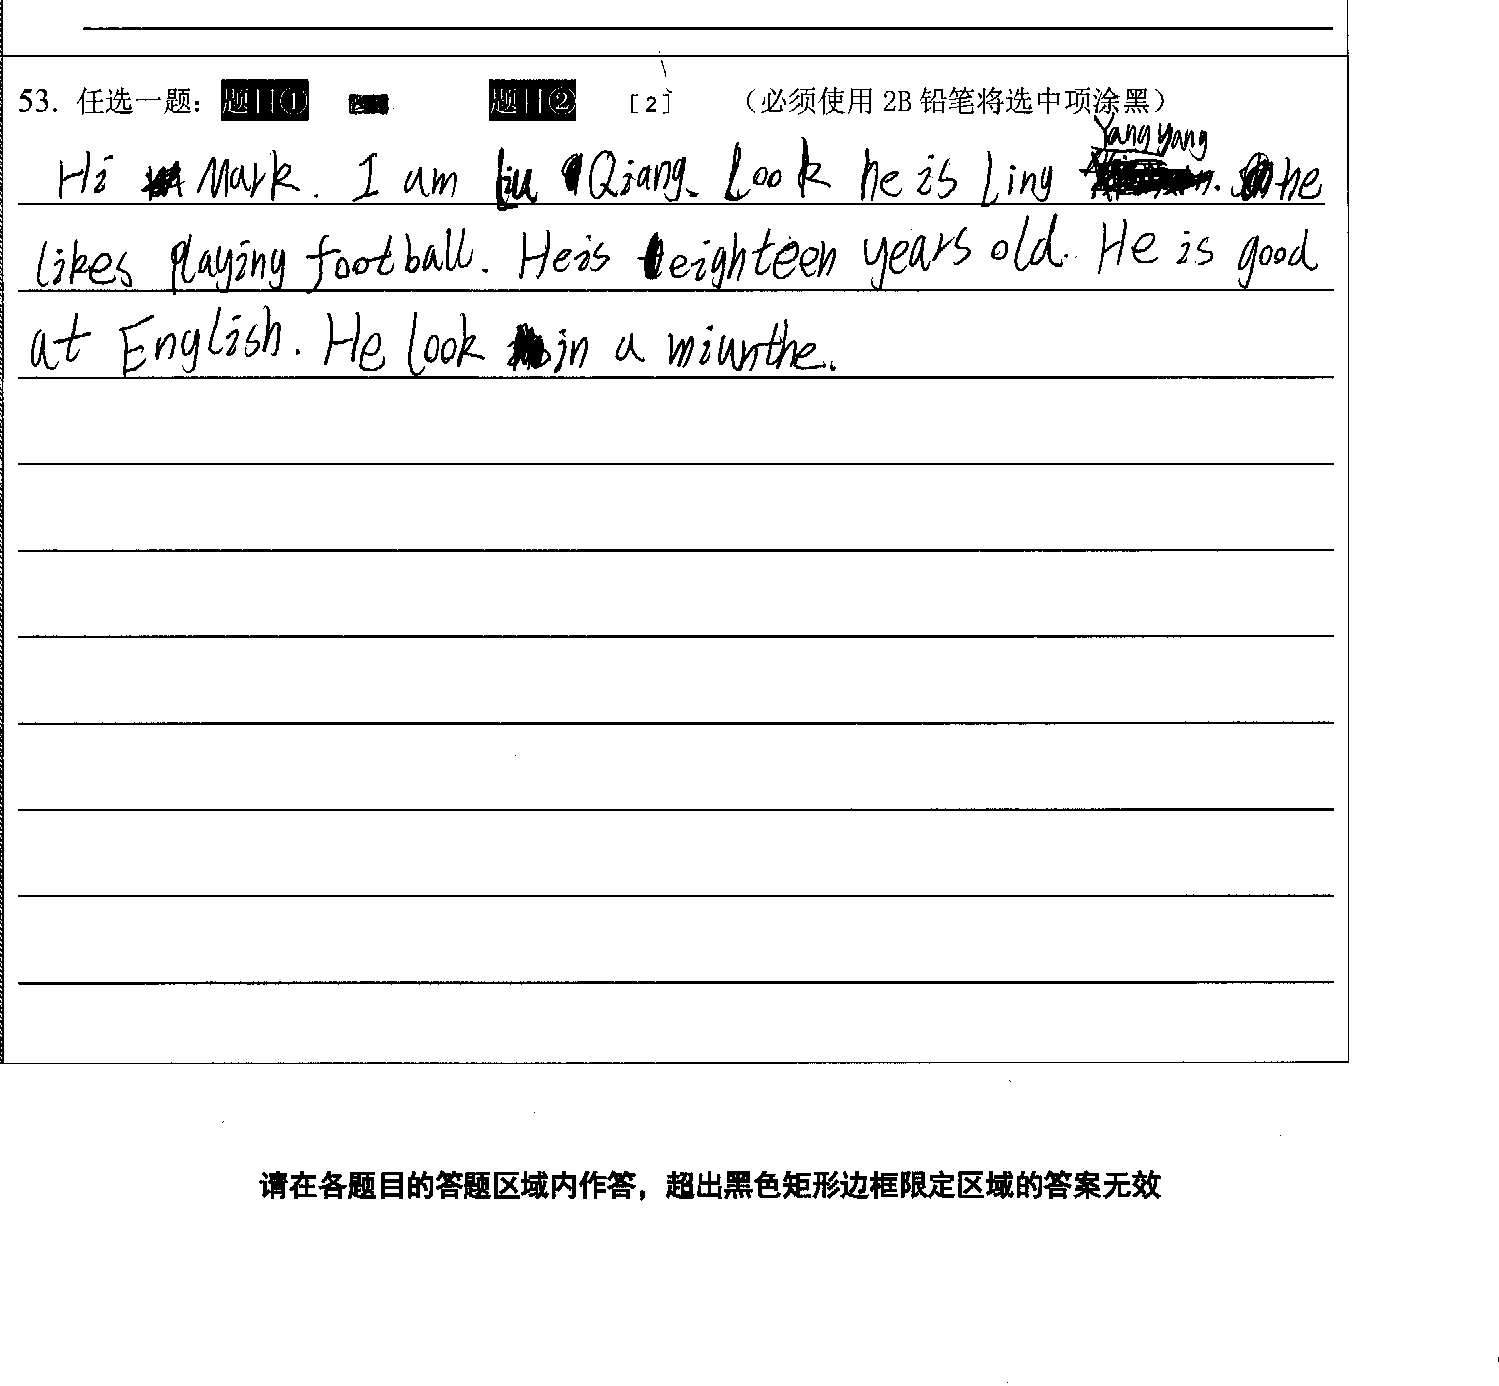 53. 任选一题： 题目① 题目② [2] （必须使用 2B 铅笔将选中项涂黑）
Yang yang
Hi Mark. I am Liu Qiang. Look he is Ling . he
likes playing football. He is eighteen years old. He is good
at English. He look in a miunthe.
请在各题目的答题区域内作答，超出黑色矩形边框限定区域的答案无效